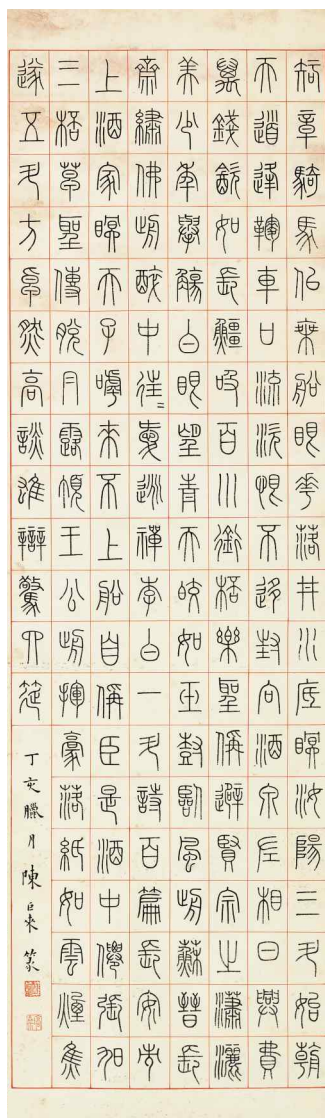 知章騎馬佀乘船眼花落井水底眠汝陽三斗始朝
天道逢麴車口流涎恨不移封向酒泉左相日興費
萬錢飲如長鱷吸百川銜桮樂聖偁避賢宗之瀟灑
美少年舉觴白眼望青天皎如玉樹臨風前蘇晉長
齋繡佛前醉中往〻愛逃禪李白一斗詩百篇長安市
上酒家眠天子嘑來不上船自偁臣是酒中僊張旭
三桮草聖傳脫冃露頂王公前揮豪落紙如雲煙焦
遂五斗方卓然高談雄辯驚四筵
丁亥臘月陳巨來篆